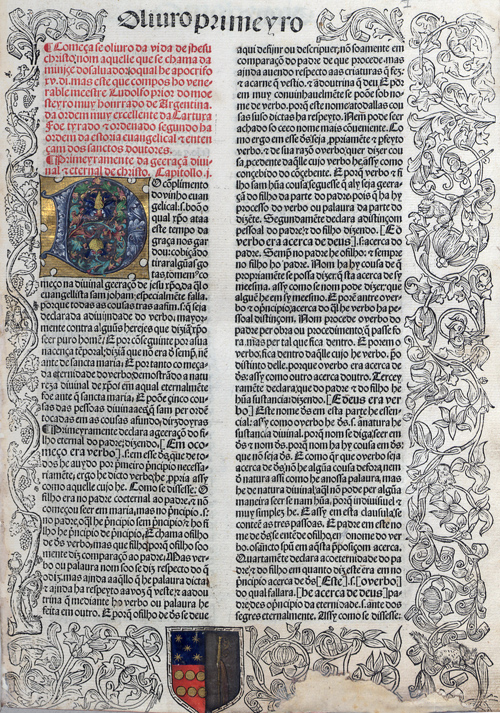 O liuro primeyro
¶Começa se o liuro da vida de jhesu
christo: nom aquelle que se chama da
mas este que compos ho vene
rable meestre Ludolfo prior do moe
steyro muy honrrado de Argentina.
da ordem muy excellente da Cartuxa
Foe tyrado & ordenado segundo ha
ordem da estoria euangelical & enten
çam dos sanctos doutores.
¶Primeyramente da geeraçã diui
nal & eternal de christo. Capitollo .j.
O cõplimento
do vinho euan
gelical. s. boõ o
qual xp̃o ataa
este tempo da
graça nos gar
dou: cobiçãdo
tirar algũas go
tas,
meço na diuinal geeraçõ de jesu
euangelista sam joham: especialmẽte falla.
porque todas as cousas traz aa fim. s. q̃ seja
declarada a diuindade do verbo. mayor-
mente contra algũus herejes que diziã xp̃o
seer puro homẽ: E por cõseguinte por a sua
nacença tẽporal: diziã que nõ era d̃ sempre, nẽ
ante de sancta maria. E por tanto começa
da eternidade do verbo: demostrãdo a natu
reza diuinal de xp̃o: em a qual eternalmẽte
foe ante q̃ sancta maria. E poõe çinco cou-
sas das pessoas diuinaaes: q̃ sam per ordẽ
tocadas em as cousas a fundo escriptas
¶Primeyramente declara a geeraçõ do fi-
lho eternal do padre: dizendo. [Em o co-
meço era verbo] s. em esse
dos he auydo por primeiro prinçipio necessa
riamẽte: ergo he dicto verbo: he, pera assy
como aquelle cujo he. Como se disesse: O
filho era no padre coeternal ao padre. & nõ
começou seer em maria, mas no prinçipio. s.
no padre, o q̃l he prinçipio sem prinçipio: & ho fi
lho he prinçipio de prinçipio. E chama o filho
de deus verbo: mais que filho: porq̃ o filho soo
mente diz comparaçõ ao padre. Mas ver
bo ou palaura nom soo se diz respecto do q̃
o diz: mas ainda aaq̃llo q̃ he palaura dicta:
& ainda ha respecto aa voz q̃ veste: & aa dou
trina q̃ mediante ho verbo ou palaura he
feita em outro. E porq̃ o filho de deus se deue
aqui definir ou descripuer, nõ soomente em
comparaçõ do padre de que procede. mas
ainda auendo respecto aas criaturas q̃ fez:
& a carne q̃ vestio. & a doutrina q̃ deu. E por
em muy conuinhauelmẽte se poõe so ho no-
me de verbo. porq̃ este nome ato dallas cou
sas suso dictas ha respecto. Nem pode seer
achado so o ceeo nome mais cõueniente. Co
mo ergo em esse deus seja, ppriamẽte & pfeyto
verbo. & de sua razõ verbo: quer dizer cou
sa, pcedente daq̃lle cujo verbo he: assy como
conçebido do cõçebente. E porq̃ verbo & fi
lho sam hũa cousa: seguesse q̃ aly seja geera-
çõ do filho da parte do padre pois q̃ ha hy
processo do verbo ou palaura da parte do
dizẽte. Segundamẽte declara a distinçom
pessoal do padre & do filho dizendo. [E o
verbo era acerca de deus] s. acerca do
padre. Semp̃ no padre he o filho: & sempre
no filho ho padre. Nam ha hy cousa de q̃
propriamẽte se possa dizer: q̃ sta acerca de sy
meesma. assy como se nom pode dizer: que
alguẽ he em sy meesmo. E porẽ antre o ver-
bo & o prinçipio: acerca do q̃l he verbo ha pes
soal distinçom. Nom procede o verbo do
padre per obra ou procedimento, q̃ passe fo
ra. mas per tal que fica dentro. E porem o
verbo: fica dentro daq̃lle cujo he verbo. pero
distinto delle. porque o verbo era acerca de
deus: assy como outro acerca doutro. Tercey
ramẽte declara: que do padre & do filho he
hũa sustancia: dizendo. [E deus era ver
bo] Este nome deus em esta parte he essen-
cial: assy como o verbo he deus. s. a natura he
sustancia diuinal. porq̃ nom se diga: seer em
deus & nom deus. porq̃ nom ha hy cousa em deus:
que nõ seja deus. E como quer que o verbo seja
acerca de deus: nõ he algũa cousa de fora, nem
d̃ natura assi como he a nossa palaura, mas
he de natura diuinal: a q̃l nõ pode per algũa
maneira seer se nam hũa. porq̃ indiuisiuel &
muy simplez he. E assy em esta clausula se
contẽ as tres passoas. E padre em este no
me do deus: se entẽde o filho, en o nome do ver
bo. o sancto spũ em aq̃sta pposiçom acerca.
Quartamẽte declara a coeternidade do pa
dre: & do filho em quanto diz: este era em no
prinçipio acerca de deus [Este] .s. [o verbo]
do qual fallara. [he acerca de deus] pa-
dre: des o prinçipio da eternidade. s. ante dos
segres eternalmente. Assy como se disesse: